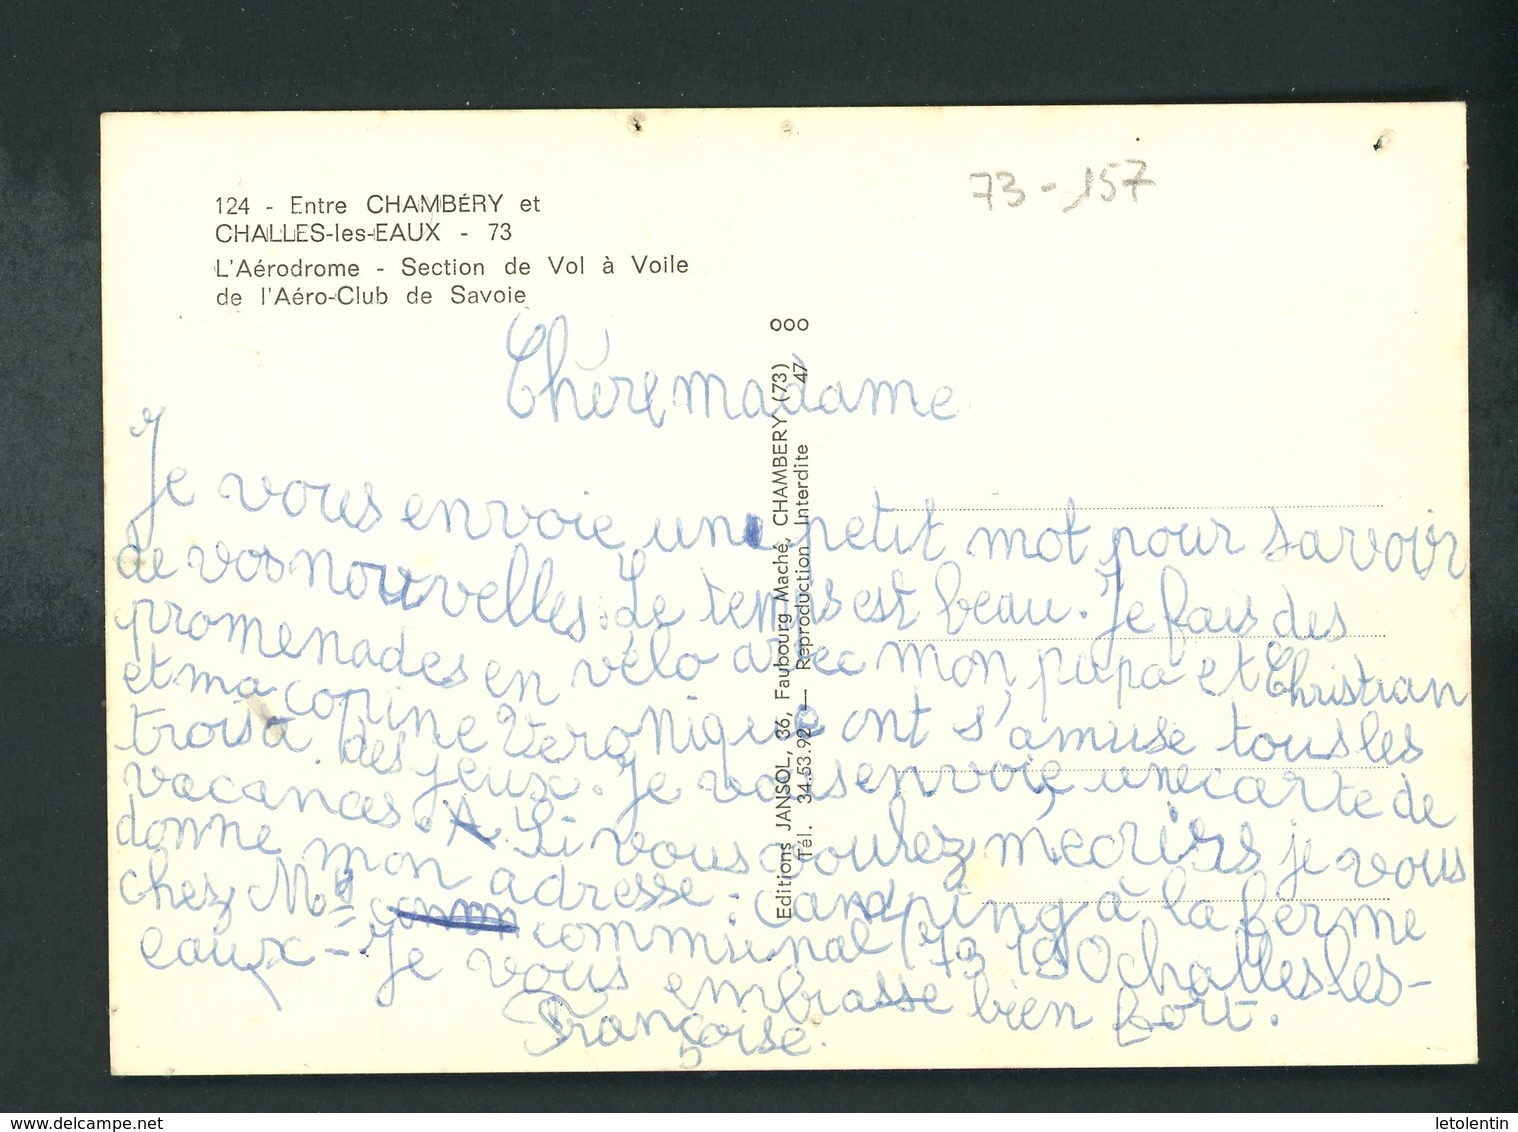 73-157
124 - Entre CHAMBÉRY et
CHALLES-les-EAUX - 73
L'Aérodrome - Section de Vol à Voile
de l'Aéro-Club de Savoie
ooo
Editions JANSOL, 36, Faubourg Maché, CHAMBERY (73)
Tél. 34.53.92 — Reproduction Interdite 47
Chère madame
Je vous envoie un petit mot pour savoir
de vos nouvelles. Le temps est beau. Je fais des
promenades en vélo avec mon papa et Christian
et ma copine Veronique ont s'amuse tous les
trois a des jeux. Je vous envoie une carte de
vacances. Si vous voulez m'ecrire je vous
donne mon adresse. camping à la ferme
chez Mr communal (73 190 challes les-
eaux - Je vous embrasse bien fort.
Françoise.
letolentin